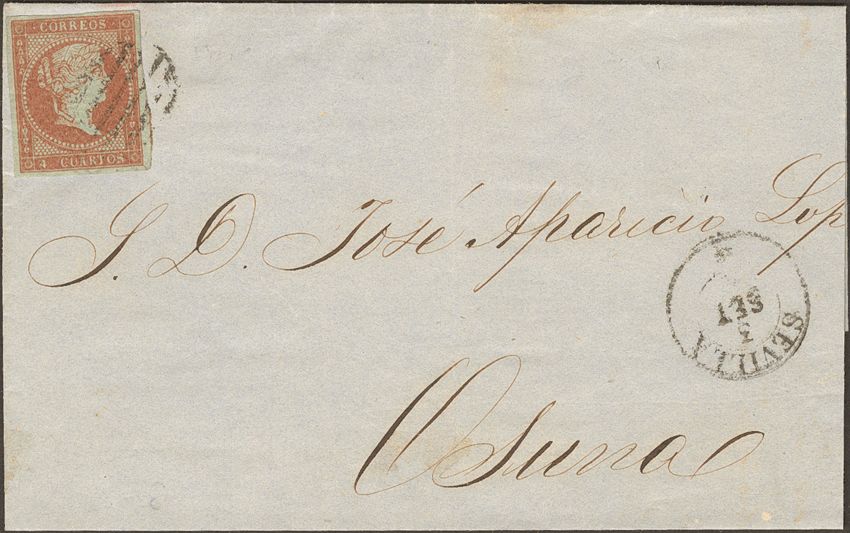 CORREOS
4 CUARTOS
S. D. José Aparicio Lop
SEVILLA
5
SET
Osuna